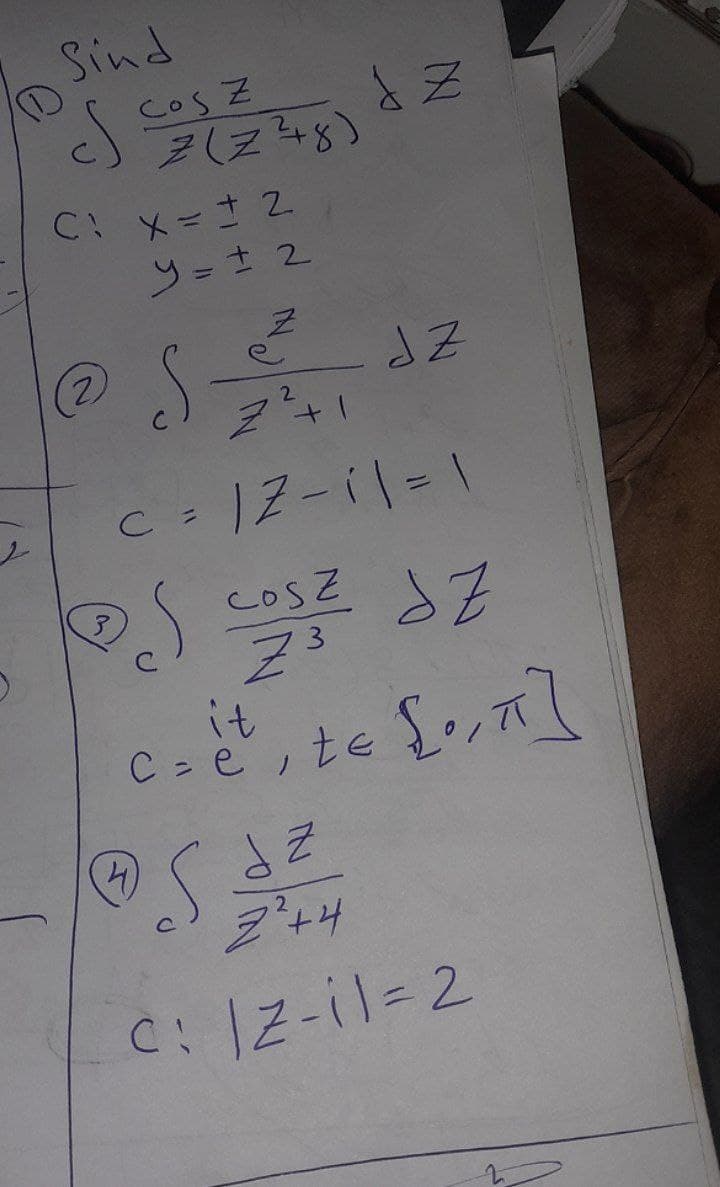 Find
① ∫c cos z / z(z²+8) dz
C: x = ± 2
y = ± 2
② ∫c e^z / z²+1 dz
C = |z-i| = 1
③ ∫c cos z / z³ dz
C = e^it, t ∈ [0, π]
④ ∫c dz / z²+4
C: |z-i| = 2